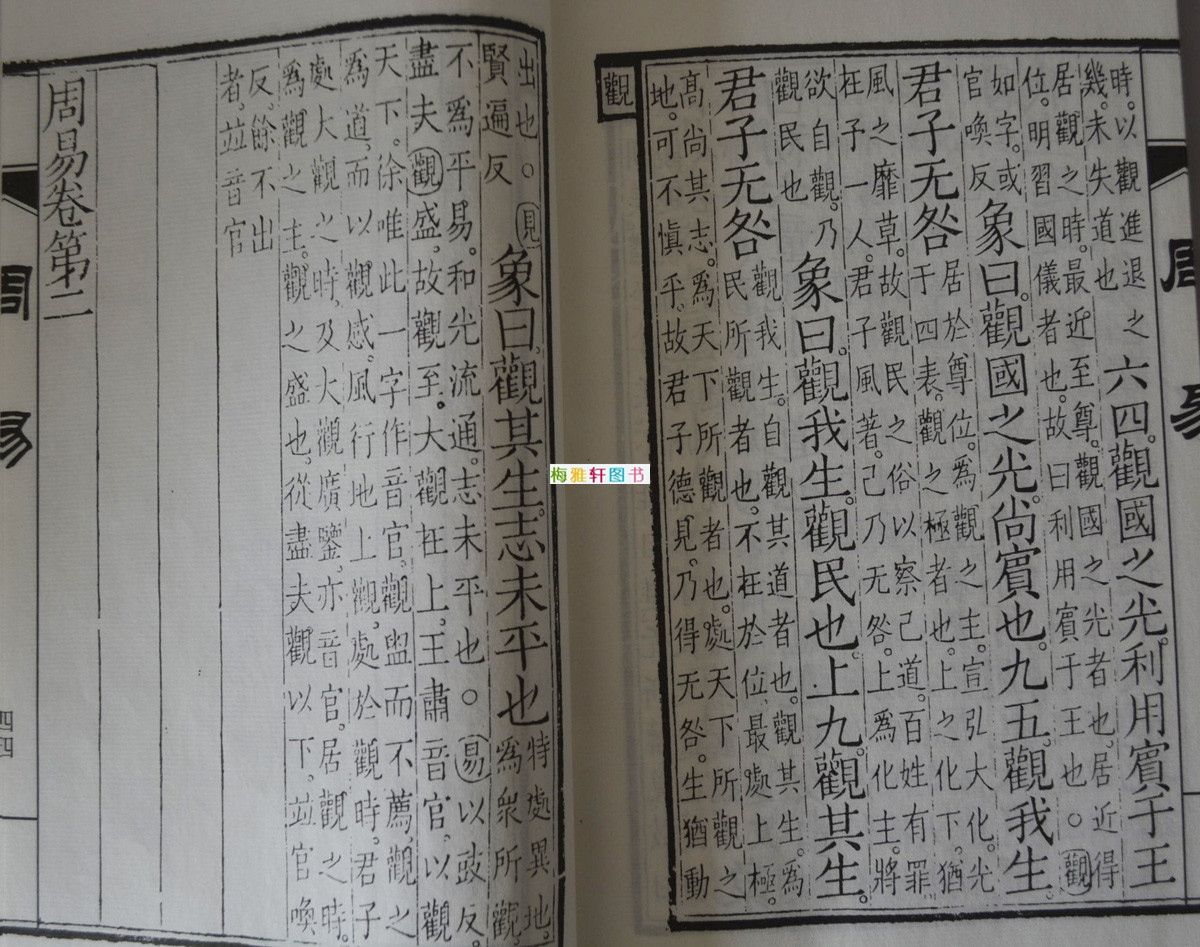 時。以觀進退之
幾。未失道也
六四。觀國之光。利用賓于王
居觀之時。最近至尊。觀國之光者也。居近得
位。明習國儀者也。故曰利用賓于王也○觀
如字。或
官喚反
象曰。觀國之光。尚賓也。九五。觀我生。
君子无咎
居於尊位。爲觀之主。宣弘大化。光
于四表。觀之極者也。上之化下。猶
風之靡草。故觀民之俗以察己道。百姓有罪
在予一人。君子風著。己乃无咎。上爲化主。將
欲自觀。乃
觀民也
象曰。觀我生。觀民也。上九。觀其生。
君子无咎
觀我生。自觀其道者也。觀其生。爲
民所觀者也。不在於位。最處上極。
高尚其志。爲天下所觀者也。處天下所觀之
地。可不慎乎。故君子德見。乃得无咎。生猶動
觀
周易
出也○見
賢遍反
象曰。觀其生。志未平也
特處異地。
爲衆所觀。
不爲平易。和光流通。志未平也○易以豉反。
盡夫觀盛。故觀至。大觀在上。王肅音官。以觀
天下。徐唯此一字作音官。觀盥而不薦。觀之
爲道。而以觀感。風行地上觀。處於觀時。君子
處大觀之時。及大觀廣鑒。亦音官。居觀之時。
爲觀之主。觀之盛也。從盡夫觀以下。並官喚
反。餘不出
者。並音官
周易卷第二
周易
四四
梅雅轩图书